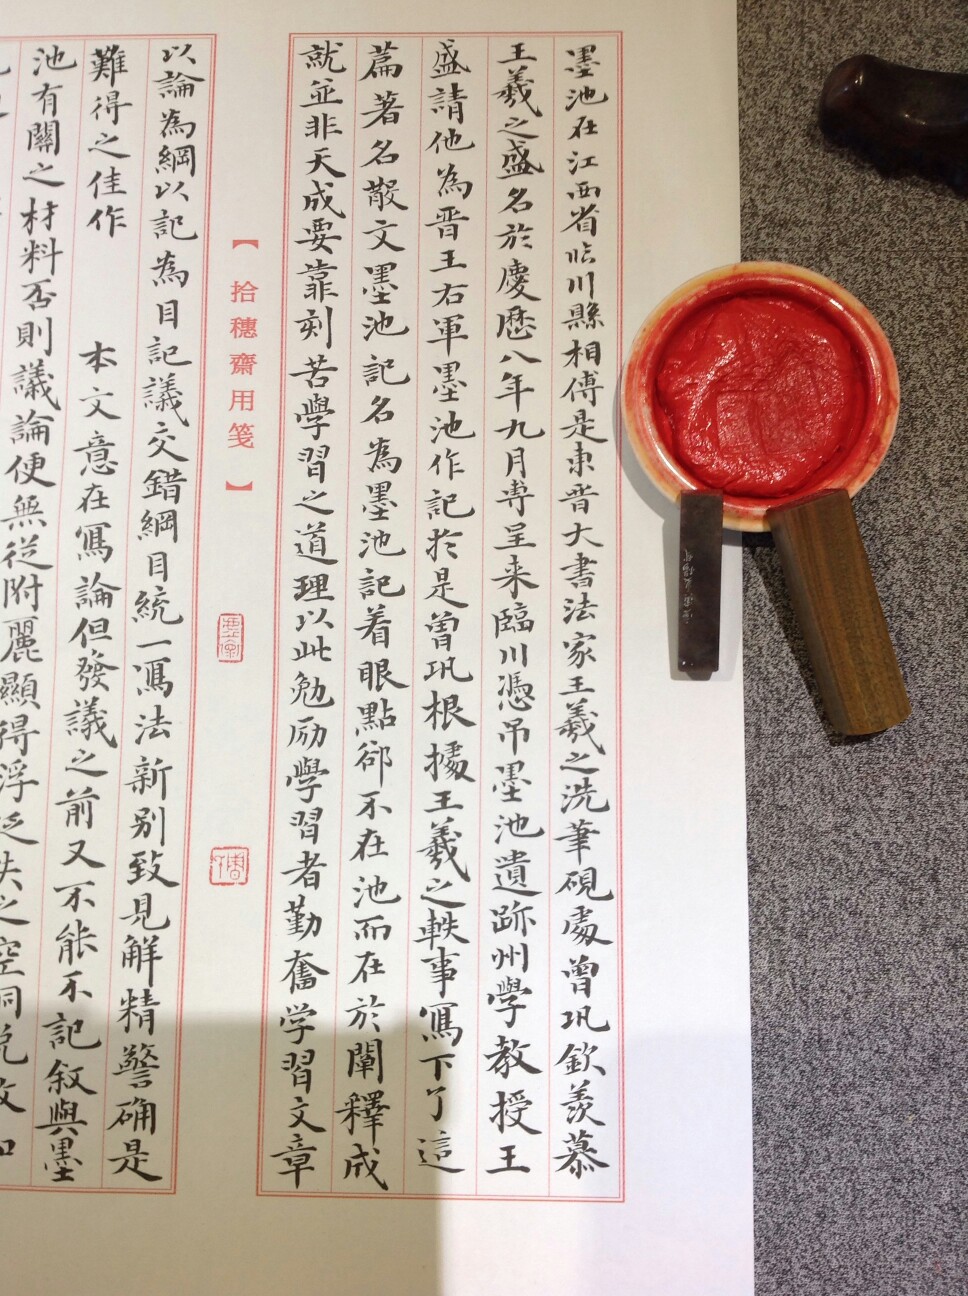 墨池在江西省临川縣相傳是東晋大書法家王羲之洗筆硯處曾巩欽羨慕
王羲之盛名於慶歷八年九月専呈来臨川憑吊墨池遺跡州學教授王
盛請他為晋王右軍墨池作記於是曾巩根據王羲之軼事寫下了這
篇著名散文墨池記名為墨池記着眼點卻不在池而在於闡釋成
就並非天成要靠刻苦學習之道理以此勉励學習者勤奮学習文章
【拾穗齋用箋】
以論為綱以記為目記議交錯綱目統一寫法新别致見解精警确是
難得之佳作 本文意在寫論但發議之前又不能不記叙與墨
池有關之材料否則議論便無從附麗顯得浮泛失之空洞